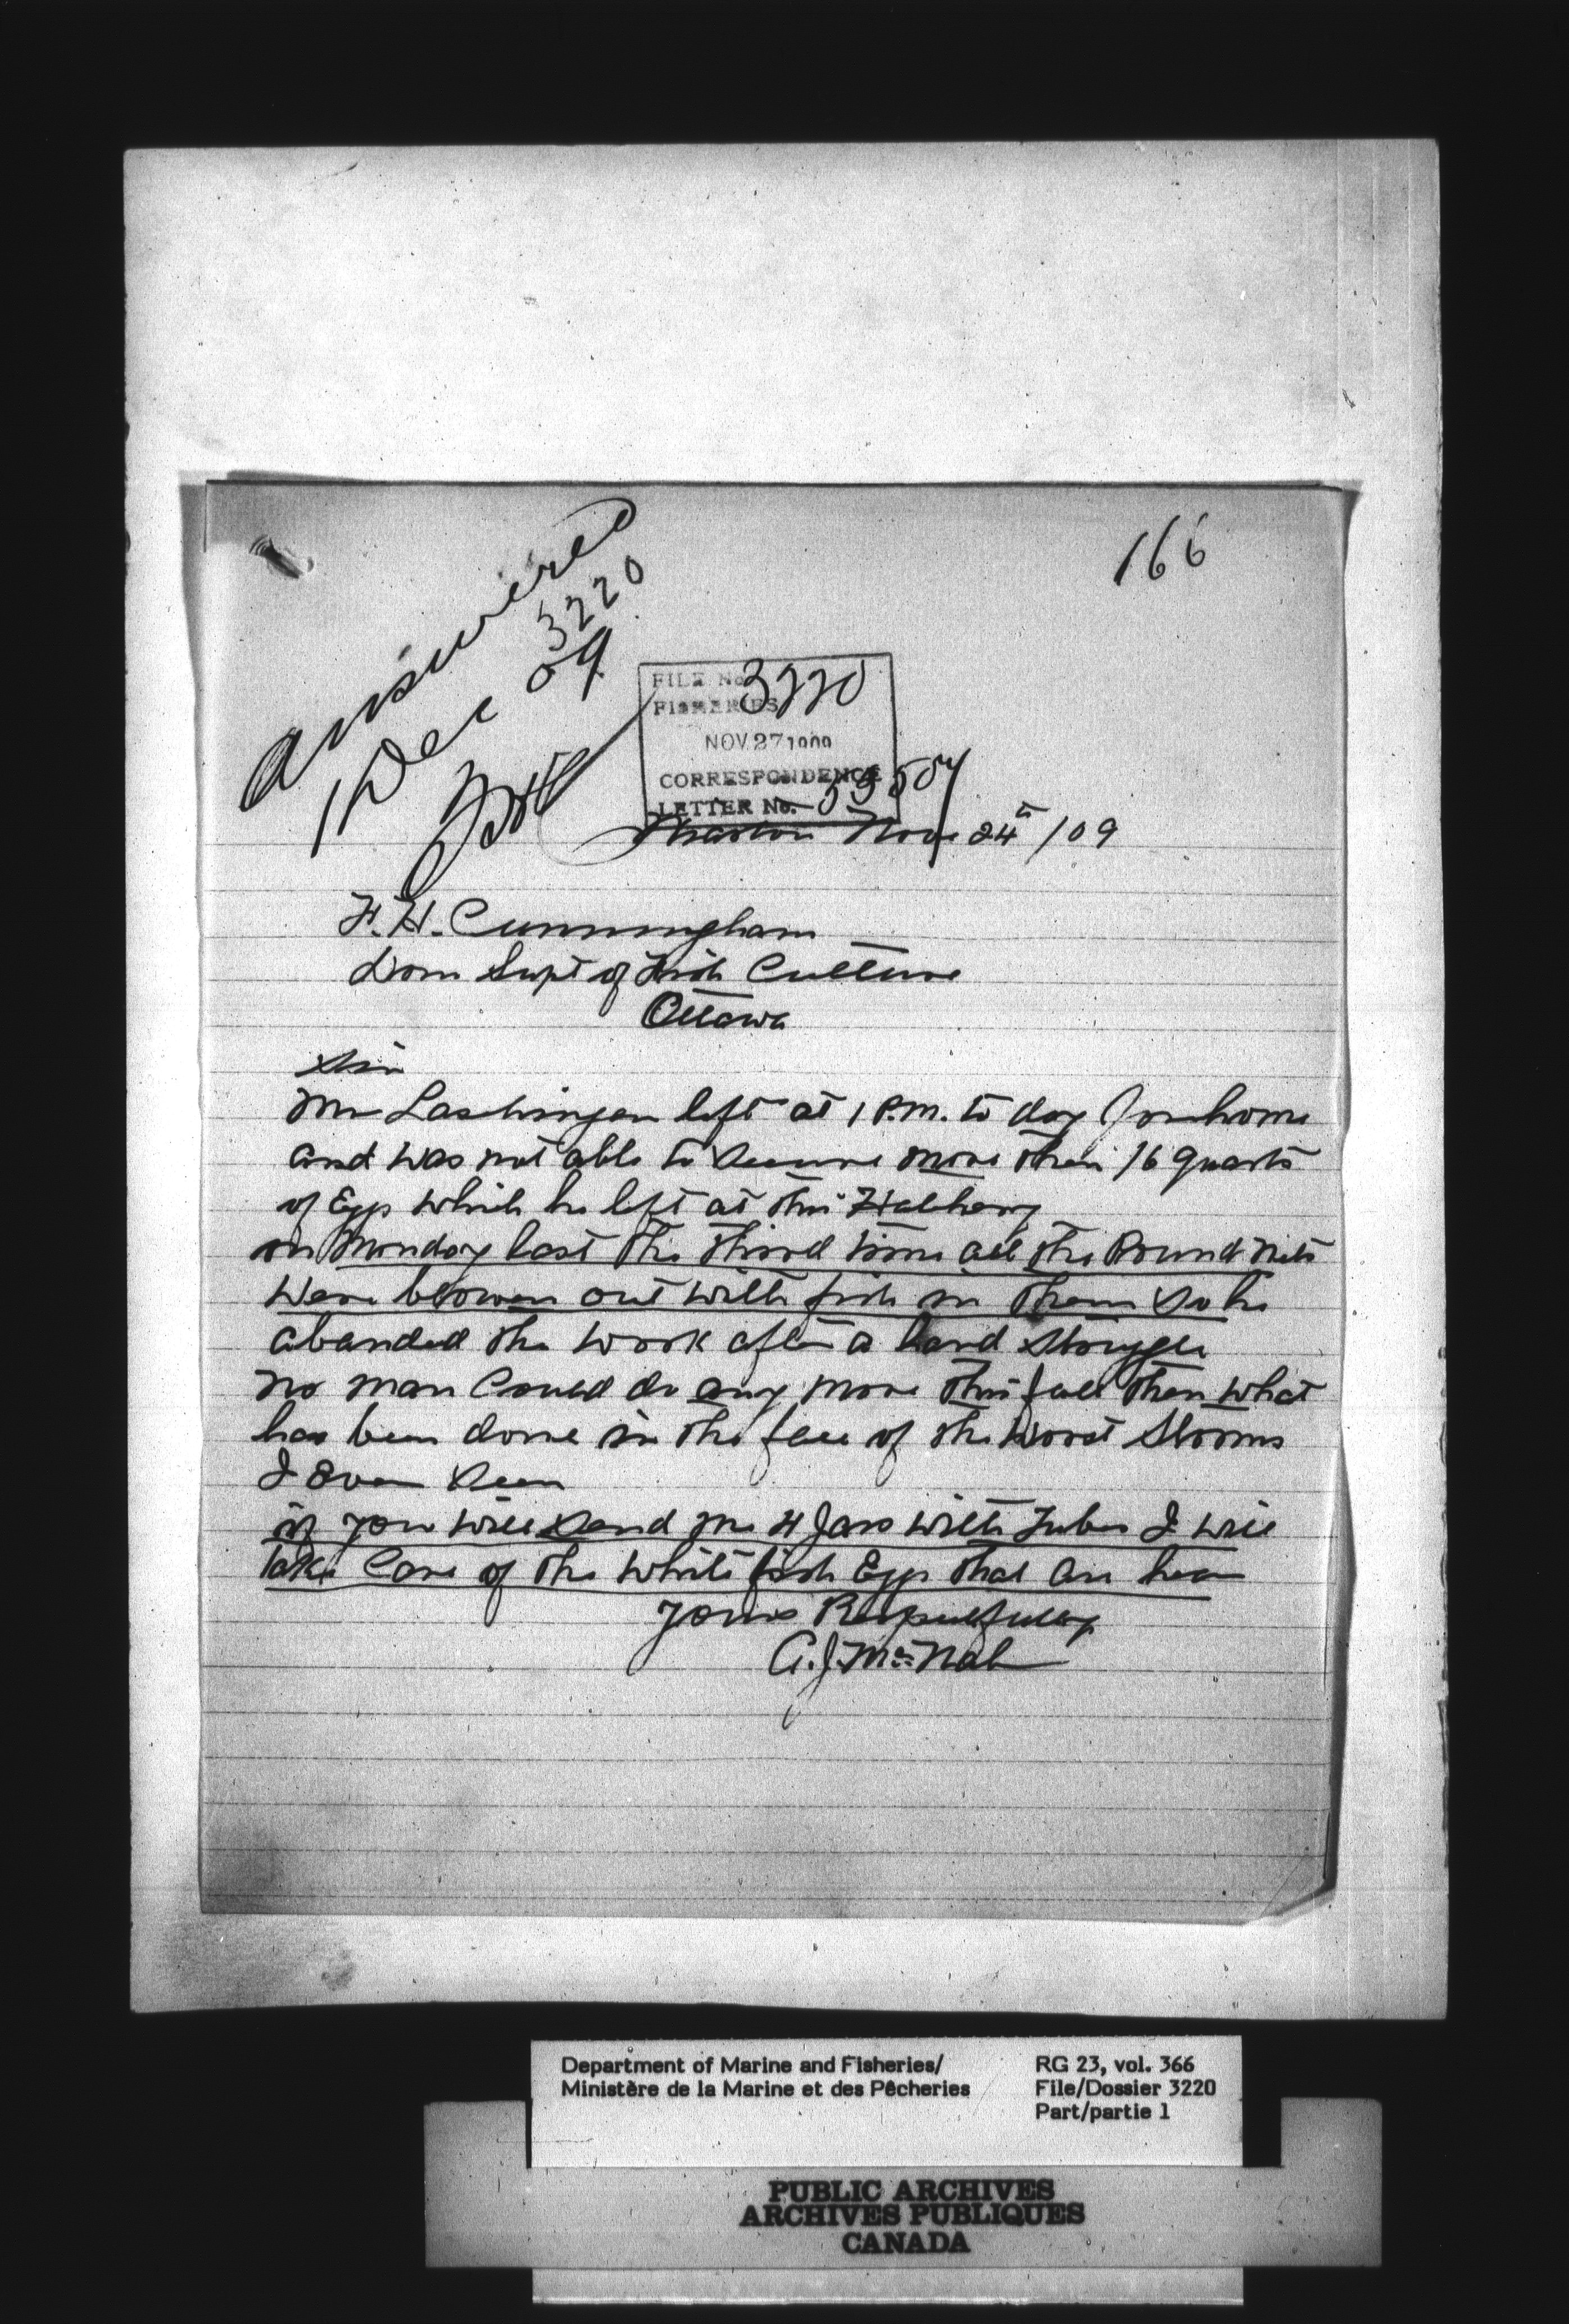 166
answered
3220
1 Dec 09
FILE No. 3220
FISHERIES
NOV 27 1909
CORRESPONDENCE
LETTER No.
Wiarton Nov 24th /09
F. H. Cunningham
Dom Supt of Fish Culture
Ottawa
Sir
Mr Laschinger left at 1 P.M. to day for home
and was not able to secure more than 16 quarts
of Eggs which he left at this Hatchery
on Monday last the third time all the Pound nets
were blowen out with fish in them so he
abanded the work after a hard struggle
no man Could do any more this fall than what
has been done in the face of the worst storms
I Ever seen
if you will send me 4 Jars with Tubes I will
take Care of the white fish Eggs that are here
Yours Respectfully
A. J. McNab
Department of Marine and Fisheries/
Ministère de la Marine et des Pêcheries
RG 23, vol. 366
File/Dossier 3220
Part/partie 1
PUBLIC ARCHIVES
ARCHIVES PUBLIQUES
CANADA